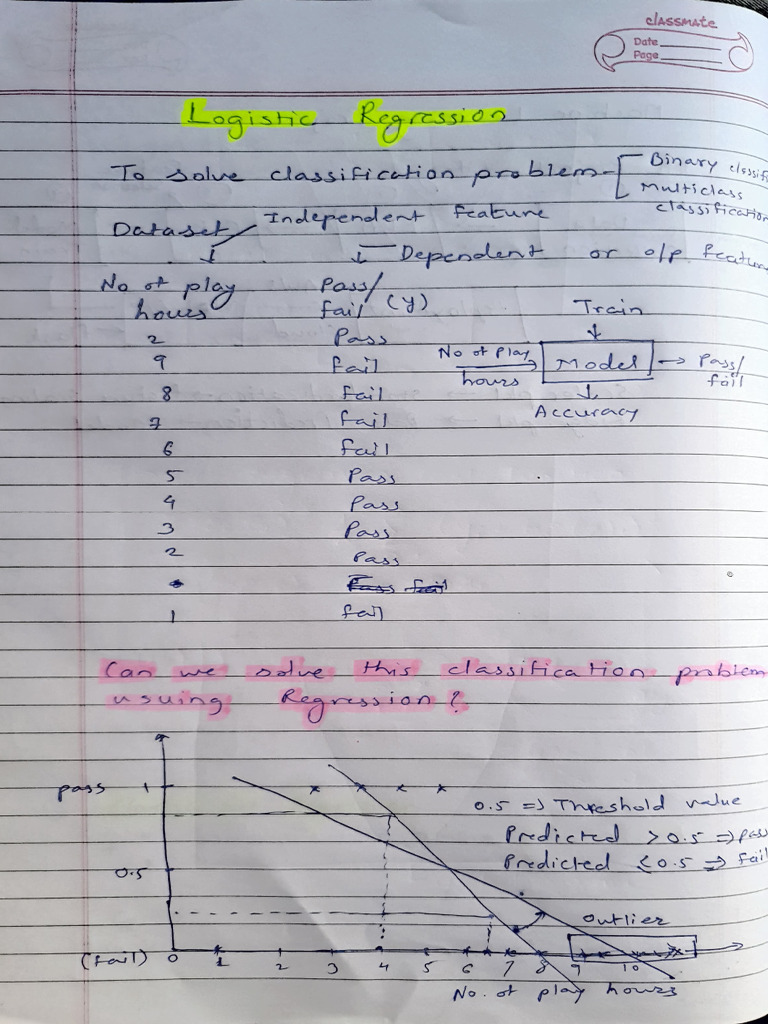 classmate
Date
Page
Logistic Regression
To solve classification problem Binary classif
Multiclass
classification
Dataset Independent feature
Dependent or o/p featur
No of play hours Pass/fail (y)
2 Pass
9 fail
8 fail
7 fail
6 fail
5 Pass
4 Pass
3 Pass
2 Pass
Pass fail
1 fail
Train
No of Play hours Model → Pass/fail
Accuracy
Can we solve this classification problem
usuing Regression?
pass 1
0.5 => Threshold value
Predicted > 0.5 => pass
Predicted ≤ 0.5 => fail
0.5
Outlier
(fail) 0 1 2 3 4 5 6 7 8 9 10
No. of play hours